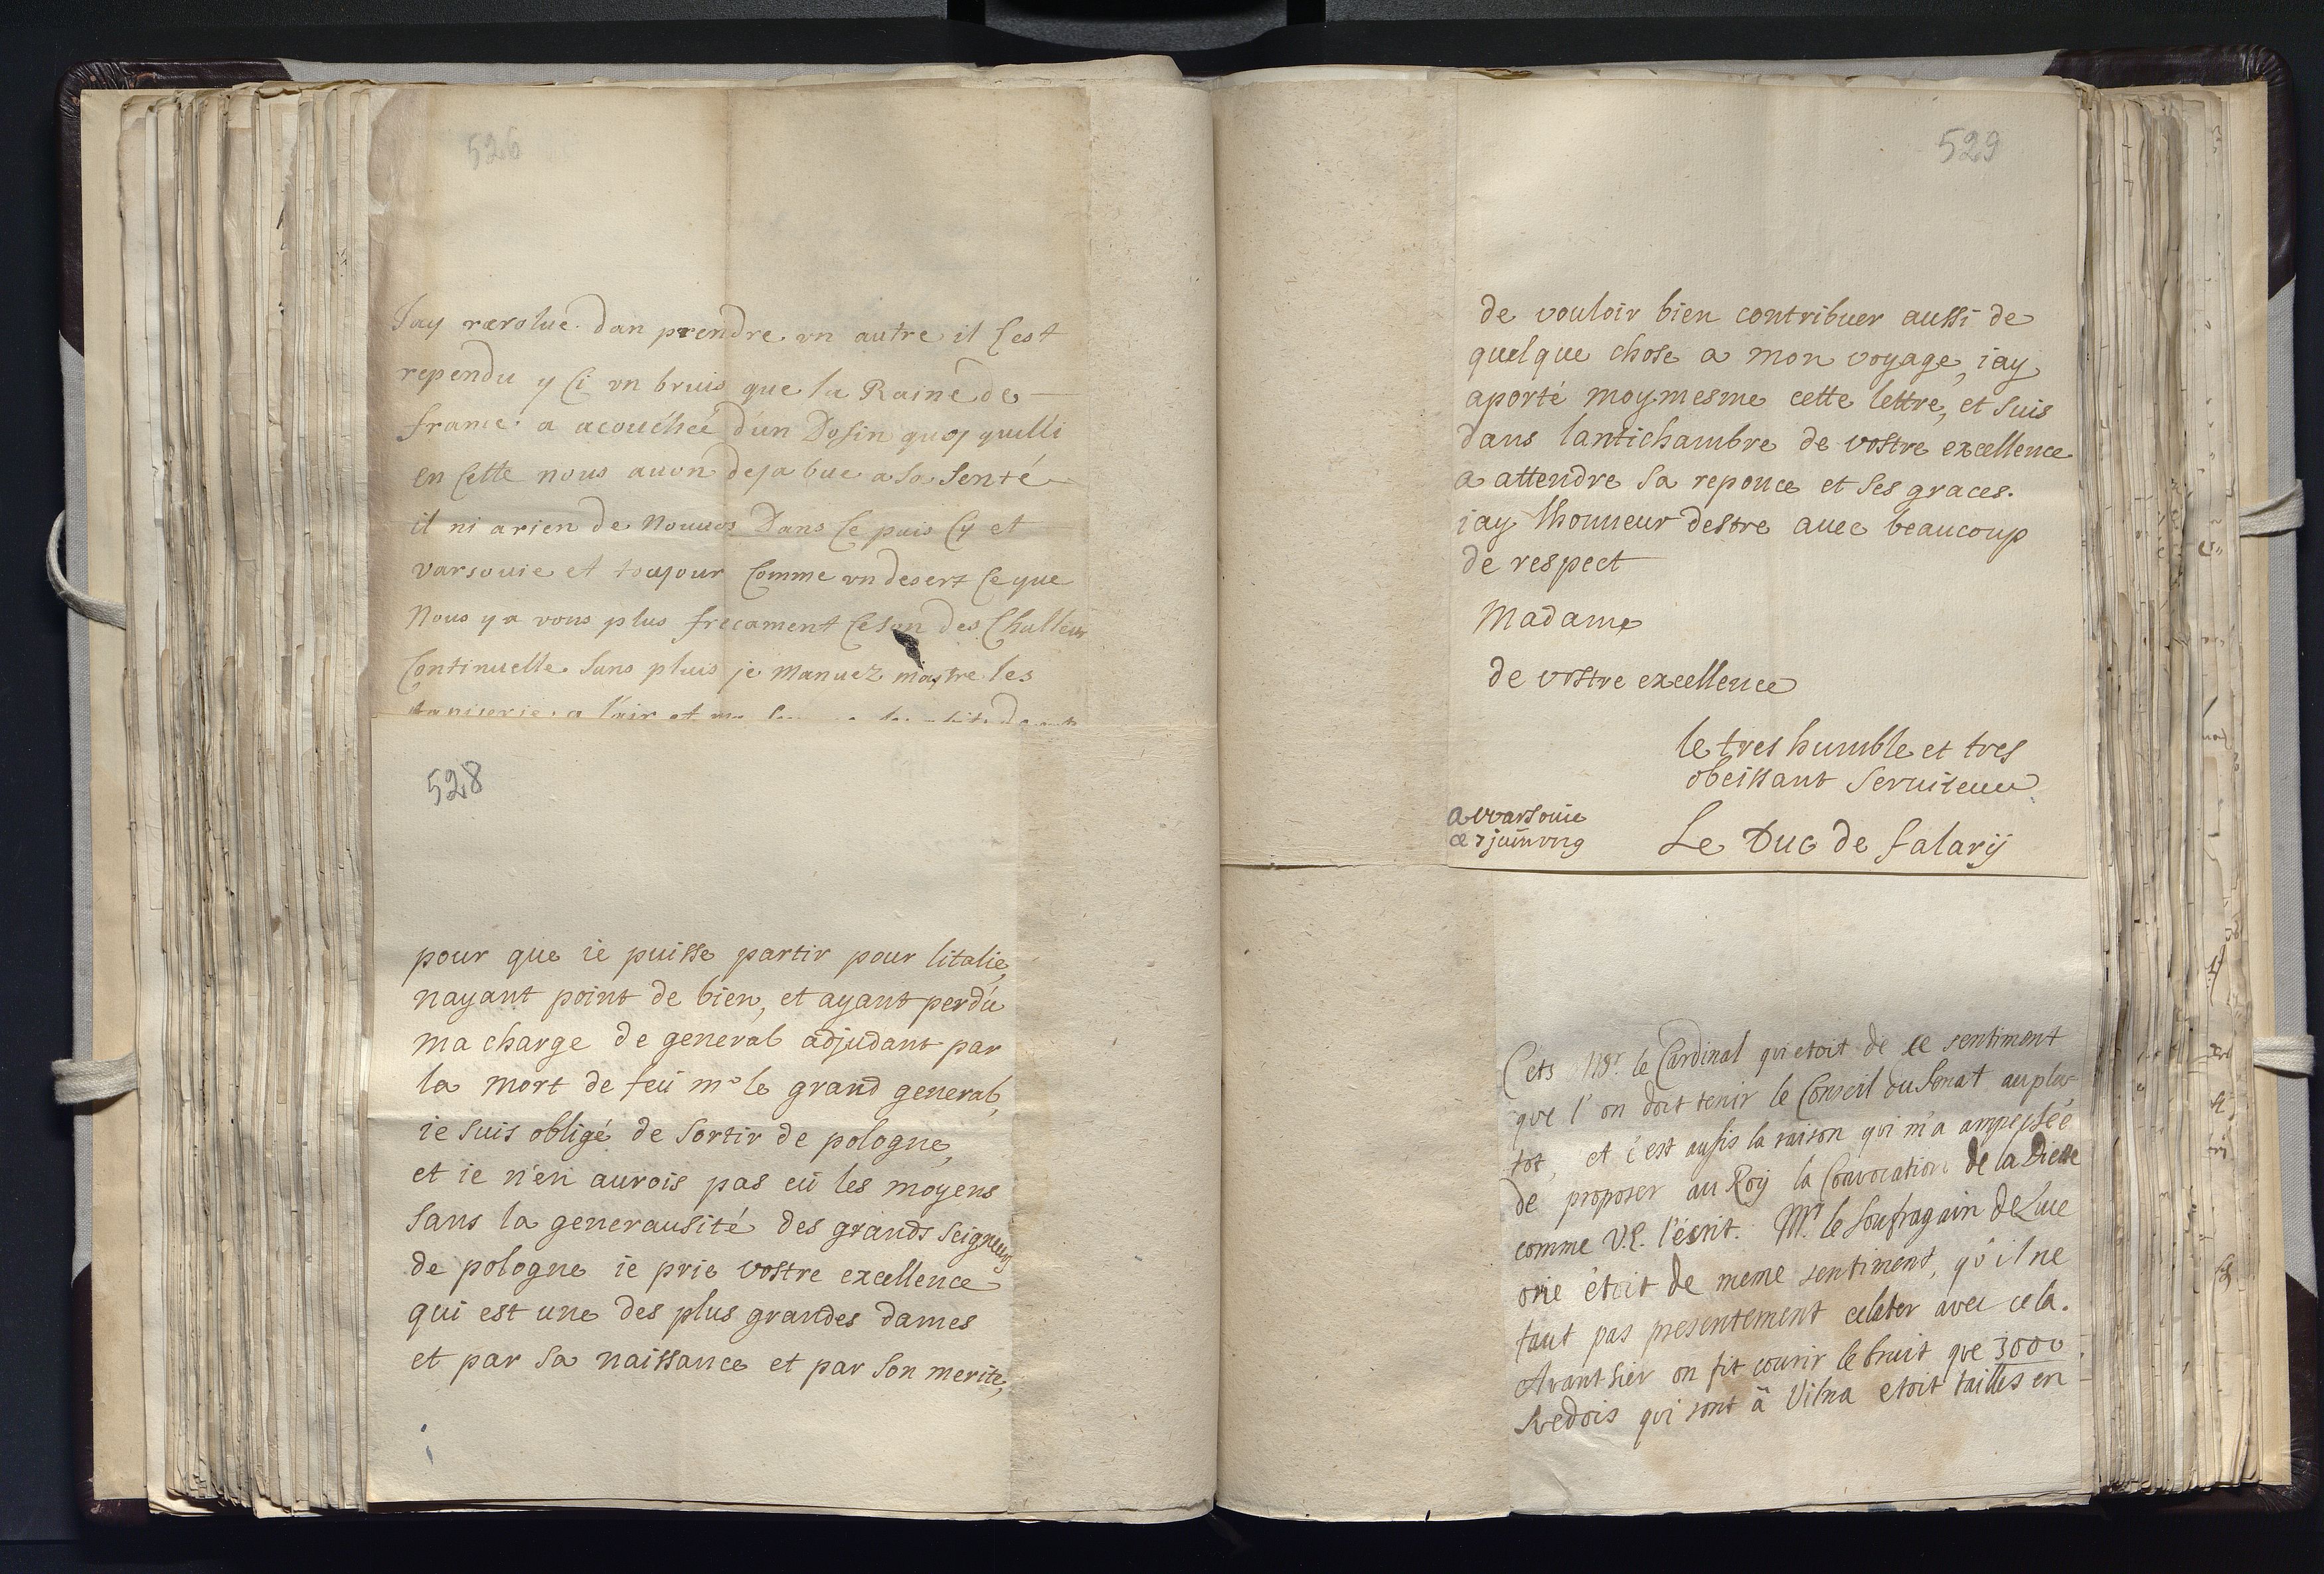 526
Jay rærolue dan prendre vn autre il Cest
rependu y Ci vn bruis que la Raine de
franie a acouchée d'un Dofin quoy quilli
en Cette nous auon deja bue a sa Senté
il ni a rien de Nouuos Dans Ce puis Cy et
varsouie et toujour Comme vn desert Ce que
Nous y a vons plus frecament Ce son des Challeur
Continuelle Sans pluis je Manuez mastre les
528
pour que ie puisse partir pour litalie,
nayant point de bien, et ayant perdu
ma charge de general adjudant par
la mort de feu mr le grand general,
ie suis obligé de sortir de pologne,
et ie n'en aurois pas eü les moyens
sans la generausité des grands seigneurs
de pologne ie prie vostre excellence
qui est une des plus grandes dames
et par sa naissance et par son merite,
529
de vouloir bien contribuer aussi de
quelque chose a mon voyage, iay
aporté moymesme cette lettre, et suis
dans lantichambre de vostre excellence
a attendre sa reponce et ses graces.
iay lhonneur destre auec beaucoup
de respect
Madame
de vostre excellence
le tres humble et tres
obeissant seruiteur
a warsouie
Le Duc de falarÿ
Cets Mgr. le Cardinal qui etoit de ce sentiment
que l'on doit tenir le Conseil du Senat au plu-
tot, et c'est aussis la raison qui m'a ampechée
de proposer au Roy la Convocation de la Diette
comme V.E. l'écrit. Mr le Soufragain de Luce
orie étoit de meme sentiment, qu'il ne
faut pas presentement eclater avec cela.
Avanthier on fit courir le bruit que 3000
Svedois qui sont à Vilna etoit tailles en